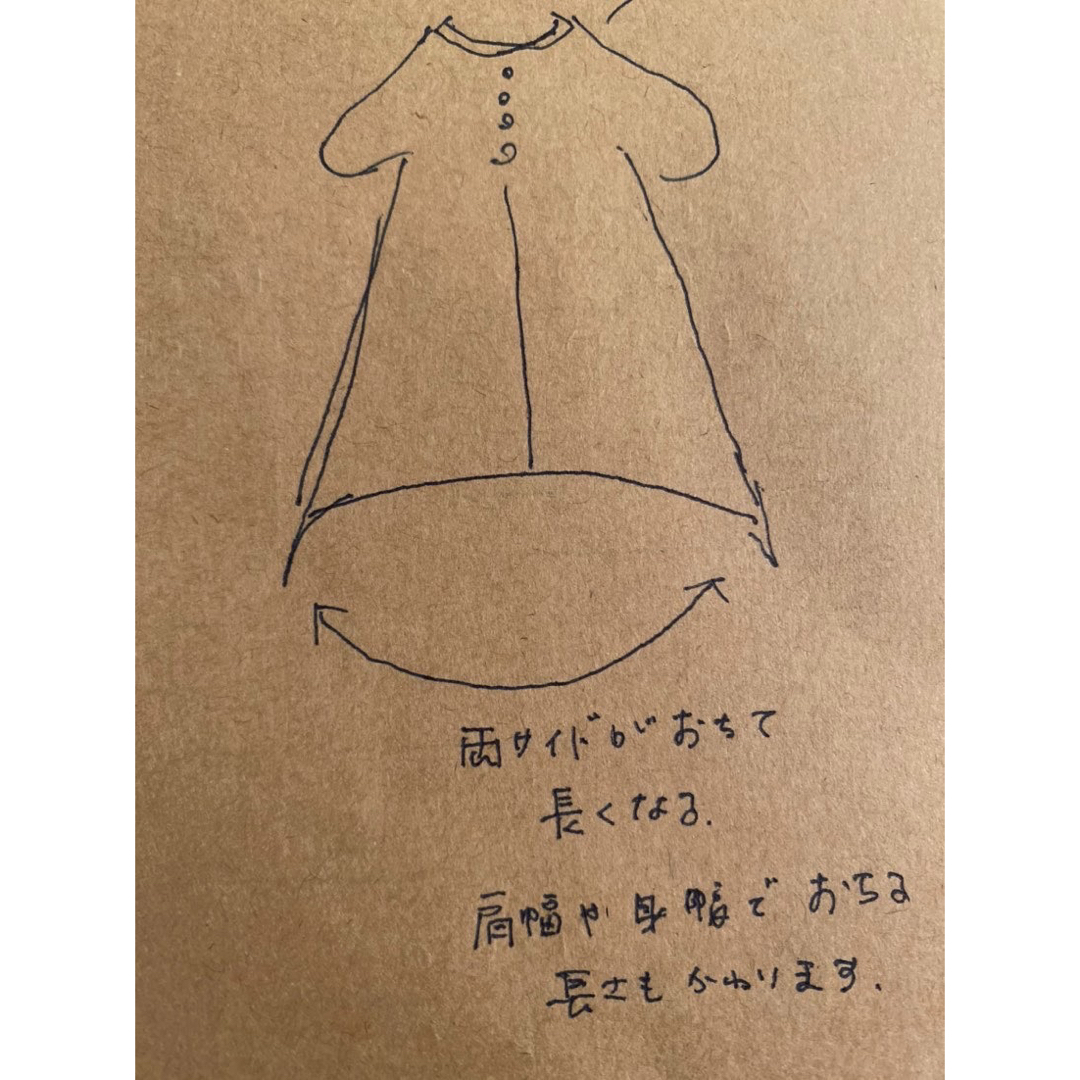 両サイドがおちて
長くなる.
肩幅や身幅でおちる
長さもかわります.